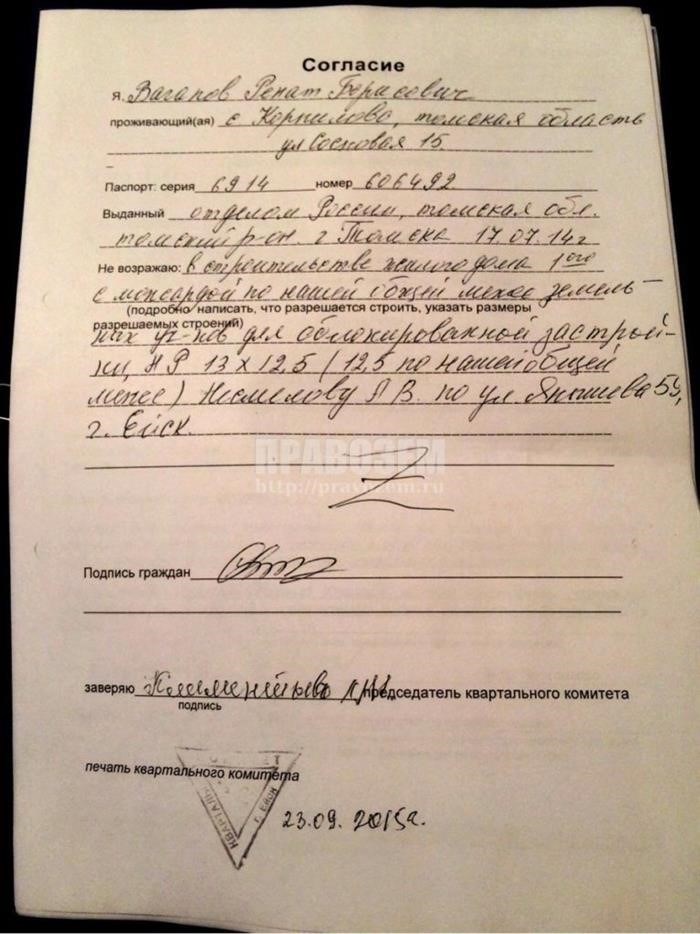 Согласие
Я, Вагапов Ренат Борисович
проживающий(ая) с Корнилово, томская область
ул Сосновая 15.
Паспорт: серия 6914 номер 606492
Выданный отделом России, томская обл.
томский р-он. г Томска 17.07.14г
Не возражаю: в строительстве жилого дома 1ого
с мансардой по нашей общей меже земель-
(подробно написать, что разрешается строить, указать размеры
разрешаемых строений)
ных уч-ков для облокированной застрой-
ки, НР 13 х 12,5 (12,5 по нашей общей
меже) Несмелову А В. по ул Янышева 59,
г. Ейск.
ПРАВОЗЕМ
http://pravozem.ru
Подпись граждан
заверяю председатель квартального комитета
подпись
печать квартального комитета
КВАРТАЛЬ г. Ейск
23.09.2015г.